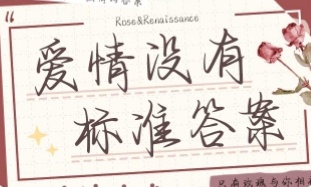 Rose&Renaissance
爱情没有
标准答案
只有玫瑰与你相